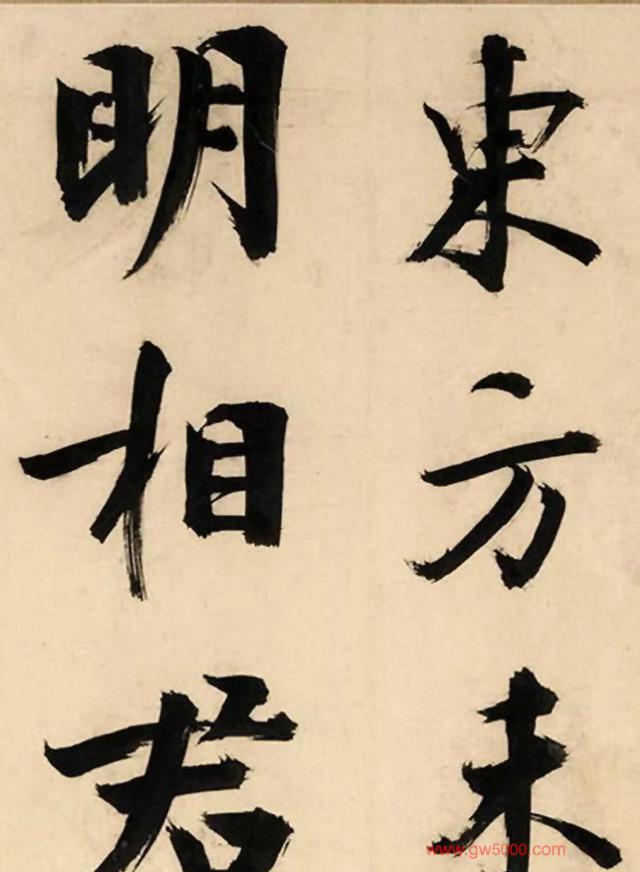 東方未
明相君
www.gw5000.com